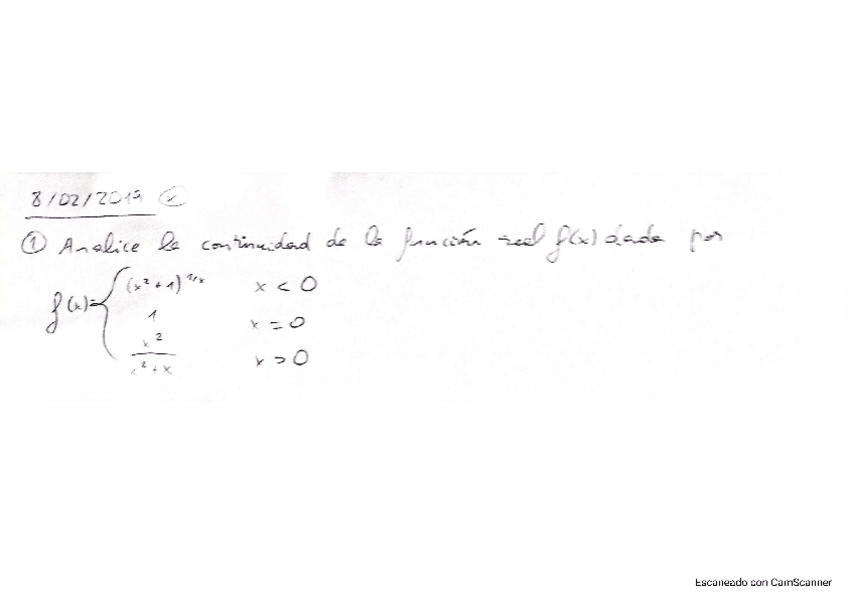 8/02/2019 x
① Analice la continuidad de la función real f(x) dada por
f(x)= { (x²+1)^1/x x < 0
1 x = 0
x²/(x²+x) x > 0
Escaneado con CamScanner